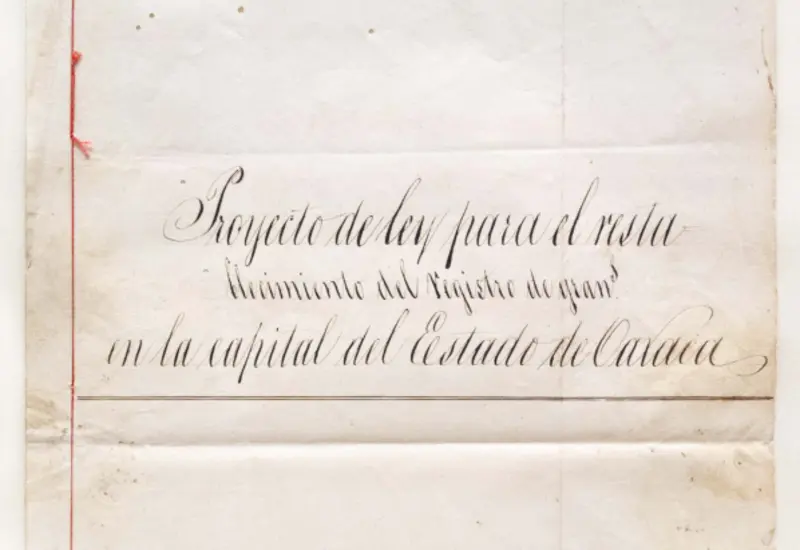 Proyecto de ley para el resta-
blecimiento del registro de gran.ˢ
en la capital del Estado de Oaxaca